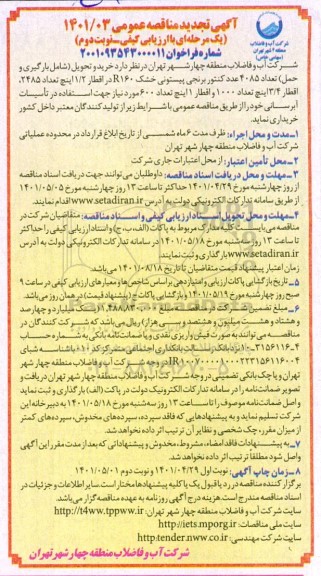 شرکت آب و فاضلاب
منطقه ۴ شهر تهران
(سهامی خاص)
آگهی تجدید مناقصه عمومی ۱۴۰۱/۰۳
(یک مرحله‌ای با ارزیابی کیفی_نوبت دوم)
شماره فراخوان ۲۰۰۱۰۹۳۵۴۳۰۰۰۰۱۱
شرکت آب و فاضلاب منطقه چهار شهر تهران در نظر دارد خرید و تحویل (شامل بارگیری و
حمل) تعداد ۴۰۸۵ عدد کنتور برنجی پیستونی خشک R۱۶۰ در اقطار ۱/۲ اینچ تعداد ۲۴۸۵،
اقطار ۳/۴ اینچ تعداد ۱۰۰۰ و اقطار ۱ اینچ تعداد ۶۰۰ مورد نیاز جهت استفاده در تأسیسات
آبرسانی خود را از طریق مناقصه عمومی با شرایط زیر از تولیدکنندگان معتبر داخل کشور
خریداری نماید.
۱_مدت و محل اجراء: ظرف مدت ۶ ماه شمسی از تاریخ ابلاغ قرارداد در محدوده عملیاتی
شرکت آب و فاضلاب منطقه چهار شهر تهران
۲_محل تأمین اعتبار: از محل اعتبارات جاری شرکت
۳_مهلت و محل دریافت اسناد مناقصه: داوطلبان می‌توانند جهت دریافت اسناد مناقصه
از روز چهارشنبه مورخ ۱۴۰۱/۰۴/۲۹ حداکثر تا ساعت ۱۳ روز چهارشنبه مورخ ۱۴۰۱/۰۵/۰۵
از طریق سامانه تدارکات الکترونیکی دولت به آدرس www.setadiran.ir اقدام نمایند.
۴_مهلت و محل تحویل اسناد ارزیابی کیفی و اسناد مناقصه: متقاضیان شرکت در
مناقصه می‌بایست کلیه مدارک مربوط به پاکات (الف، ب، ج) و اسناد ارزیابی کیفی را حداکثر
تا ساعت ۱۳ روز سه‌شنبه مورخ ۱۴۰۱/۰۵/۱۸ در سامانه تدارکات الکترونیکی دولت به آدرس
www.setadiran.ir بارگذاری و ثبت نمایند.
زمان اعتبار پیشنهاد قیمت متقاضیان تا تاریخ ۱۴۰۱/۰۸/۱۸ می‌باشد.
۵_ تاریخ بازگشایی پاکات ارزیابی و امتیازدهی بر اساس شاخص‌ها و معیارهای ارزیابی کیفی در ساعت ۹
صبح روز چهارشنبه مورخ ۱۴۰۱/۰۵/۱۹ و بازگشایی پاکات ج (پیشنهاد قیمت) در همان روز می‌باشد.
۶_ مبلغ تضمین شرکت در مناقصه
و هشتاد و هشت میلیون و هشتصد و سی هزار) ریال می‌باشد که شرکت کنندگان در
مناقصه می‌توانند به صورت فیش واریز نقدی و یا ضمانتنامه بانکی به شماره حساب
تهران و یا چک بانکی تضمینی در وجه شرکت آب و فاضلاب منطقه چهار شهر تهران دریافت و
تصویر ضمانت‌نامه را در سامانه تدارکات الکترونیک دولت در پاکت (الف) بارگذاری و ثبت نماید
و اصل ضمانت‌نامه موصوف را تا ساعت ۱۳ روز سه‌شنبه مورخ ۱۴۰۱/۰۵/۱۸ به دبیرخانه این
شرکت تسلیم نماید و به پیشنهادهایی که فاقد سپرده، سپرده‌های مخدوش، سپرده‌های کمتر
از میزان مقرر، چک شخصی و نظایر آن ترتیب اثر داده نخواهد شد.
۷_ به پیشنهادات فاقد امضاء، مشروط، مخدوش و پیشنهاداتی که بعد از مدت مقرر این آگهی
واصل شود مطلقا ترتیب اثر داده نخواهد شد.
۸_زمان چاپ آگهی: نوبت اول ۱۴۰۱/۰۴/۲۹ و نوبت دوم ۱۴۰۱/۰۵/۰۱
برگزار کننده مناقصه در رد یا قبول یک یا کلیه پیشنهادها مختار است. سایر اطلاعات و جزئیات در
اسناد مناقصه مندرج است. هزینه درج آگهی روزنامه به عهده مناقصه‌گزار می‌باشد.
سایت شرکت آب و فاضلاب منطقه چهار شهر تهران: http://t4ww.tppww.ir
سایت ملی مناقصات: http://iets.mporg.ir
سایت شرکت مهندسی: http:tender.nww.co.ir
شرکت آب و فاضلاب منطقه چهار شهر تهران